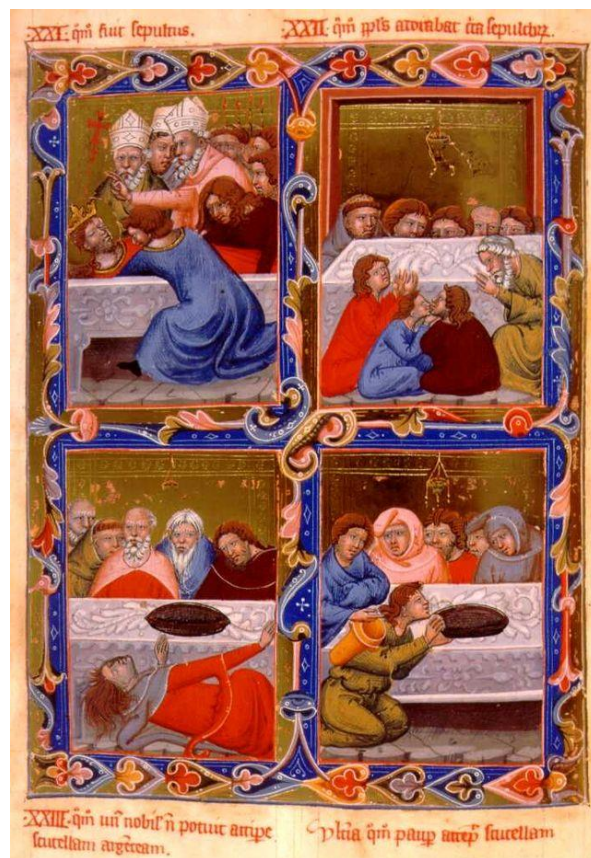 ·XXI· qm̄ fuit sepultus.
·XXII· qm̄ ppl̄s adorabat sc̄a sepulchr̄.
·XXIII· qm̄ uir̄ nobil̄ n̄ potuit accipe
scutellam argēteam.
Vltīa qm̄ paup̄ accep̄ scutellam